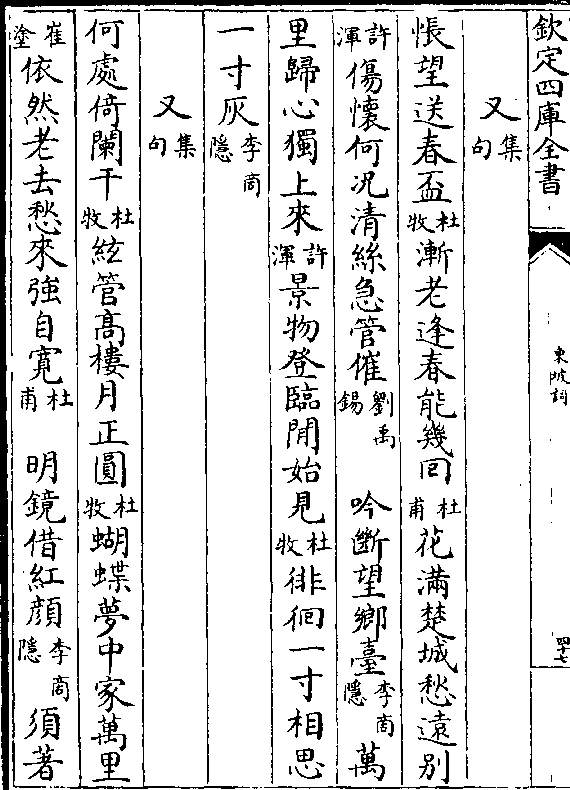 欽定四庫全書
東坡詞
四十七
又集句
悵望送春盃杜牧漸老逢春能幾回杜甫花滿楚城愁遠別
許渾傷懷何况清絲急管催劉禹錫 吟斷望鄉臺李商隱萬
里歸心獨上來許渾景物登臨閒始見杜牧徘徊一寸相思
一寸灰李商隱
又集句
何處倚闌干杜牧絃管高樓月正圓杜牧蝴蝶夢中家萬里
崔塗依然老去愁來強自寛杜甫 明鏡借紅顔李商隱 須著